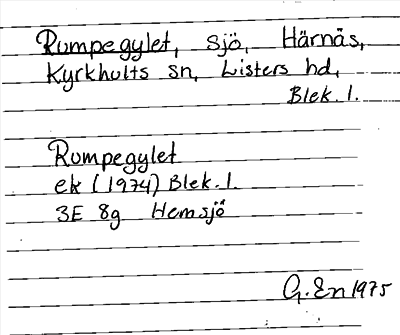 Rumpegylet, sjö, Härnäs,
Kyrkhults sn, Listers hd,
Blek. l.
Rumpegylet
ek (1974) Blek. l.
3E 8g Hemsjö
G. En 1975